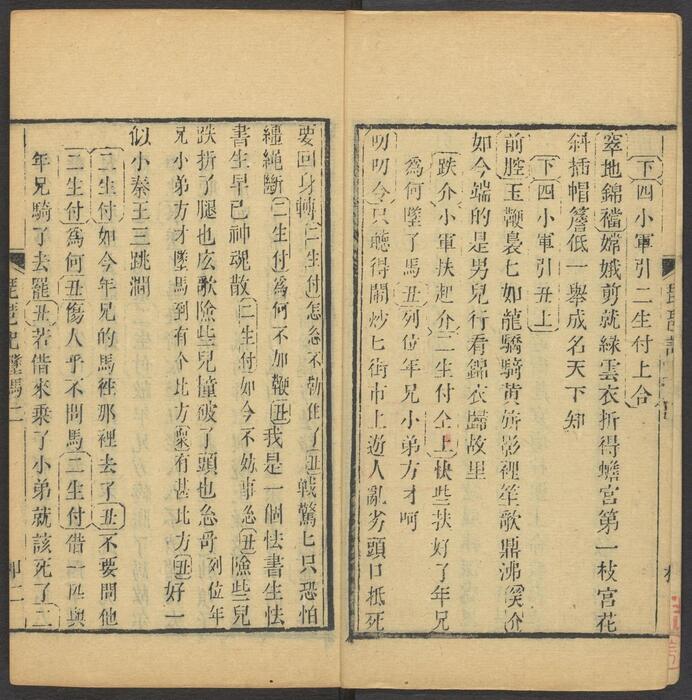 下四小軍引二生付上合
窣地錦襠嫦娥剪就綠雲衣折得蟾宮第一枝宮花
斜插帽簷低一舉成名天下知
下四小軍引丑上
前腔玉鞭裊七如龍驕騎黃旂影裡笙歌鼎沸介
如今端的是男兒行看錦衣歸故里
跌介小軍扶起介二生付仝上快些扶好了年兄
爲何墜了馬丑列位年兄小弟方才呵
叨叨令只聽得鬧炒七街市上遊人亂劣頭口抵死
要回身轉二生付怎忽不勒住了丑戰驚七只恐怕
韁繩斷二生付爲何不加鞭丑我是一個怯書生怯
書生早已神魂散二生付如今不妨事丑險些兒
跌折了腿也庅歌險些兒撞破了頭也列位年
兄小弟方才墜馬到有个比方有甚比方丑好一
似小秦王三跳澗
二生付如今年兄的馬往那裡去了丑不要問他
二生付爲何丑傷人乎不問馬二生付借一匹與
年兄騎了去罷丑若借來乘了小弟就該死了二
琵琶記墜馬二